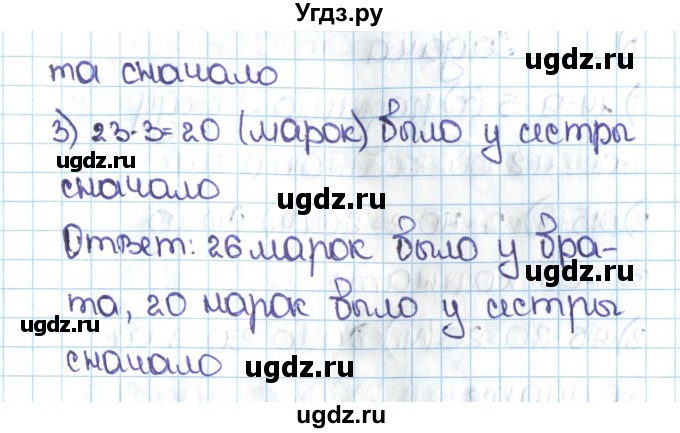 Угдз.ру
та сначало
3) 23-3=20 (марок) было у сестры
сначало
Ответ: 26 марок было у бра-
та, 20 марок было у сестры
сначало
ugdz.ru
ugdz.ru
ugdz.ru
ugdz.ru
ugdz.ru
ugdz.ru
ugdz.ru
ugdz.ru
ugdz.ru